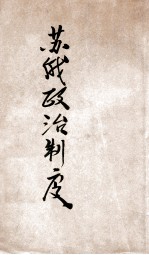 苏俄政治制度